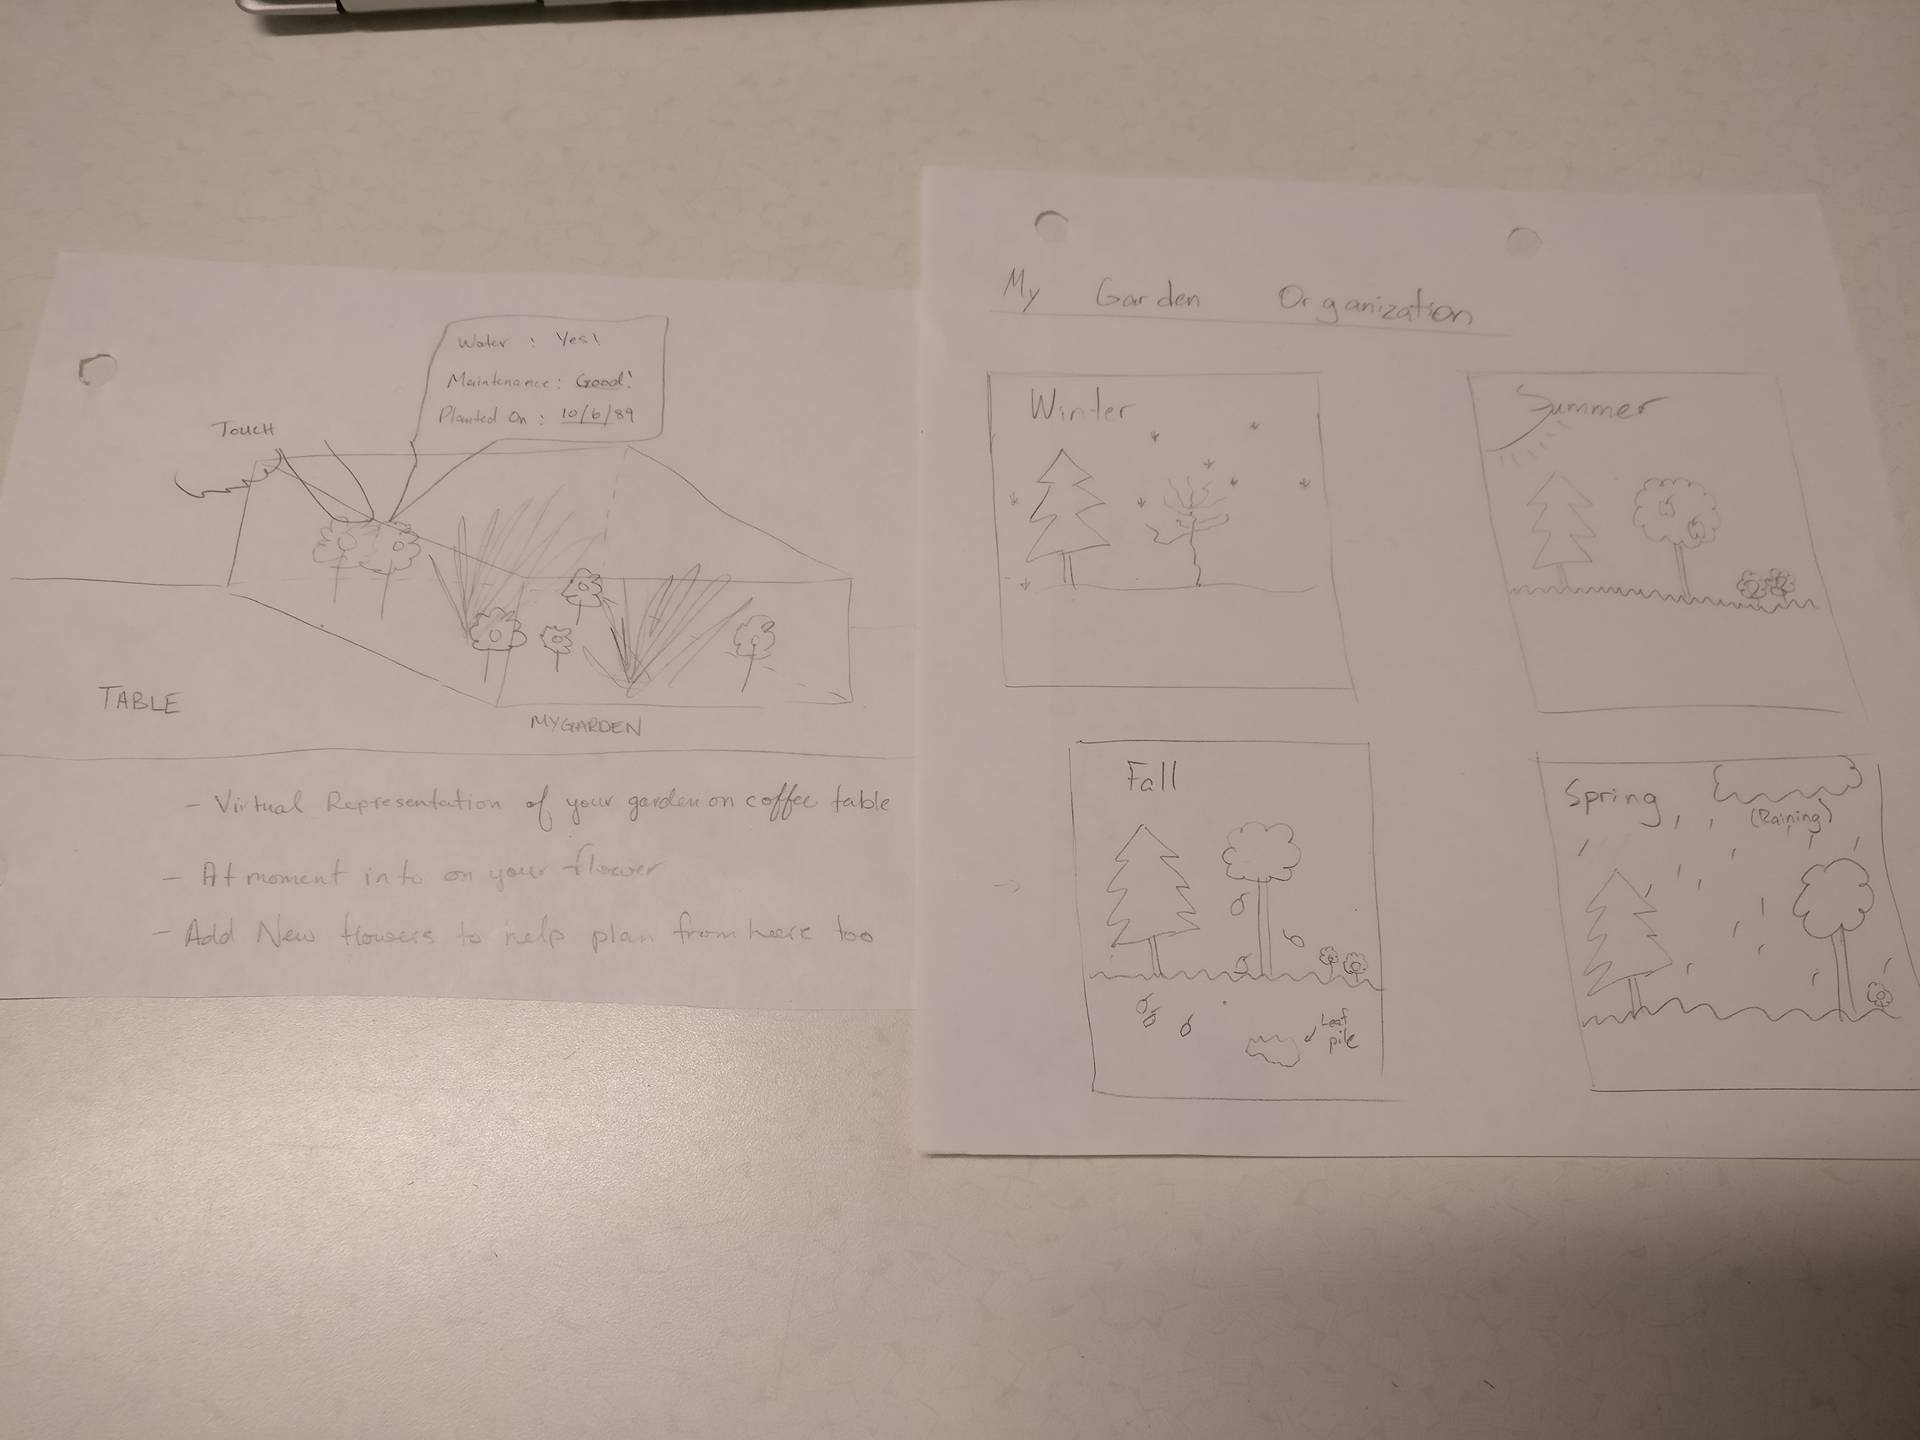 Water : Yes!
Maintenance : Good!
Planted On : 10/6/89
TOUCH
TABLE
MYGARDEN
- Virtual Representation of your garden on coffee table
- At moment info on your flower
- Add New flowers to help plan from here too
My Garden Organization
Winter
Summer
Fall
Leaf
pile
Spring
(Raining)